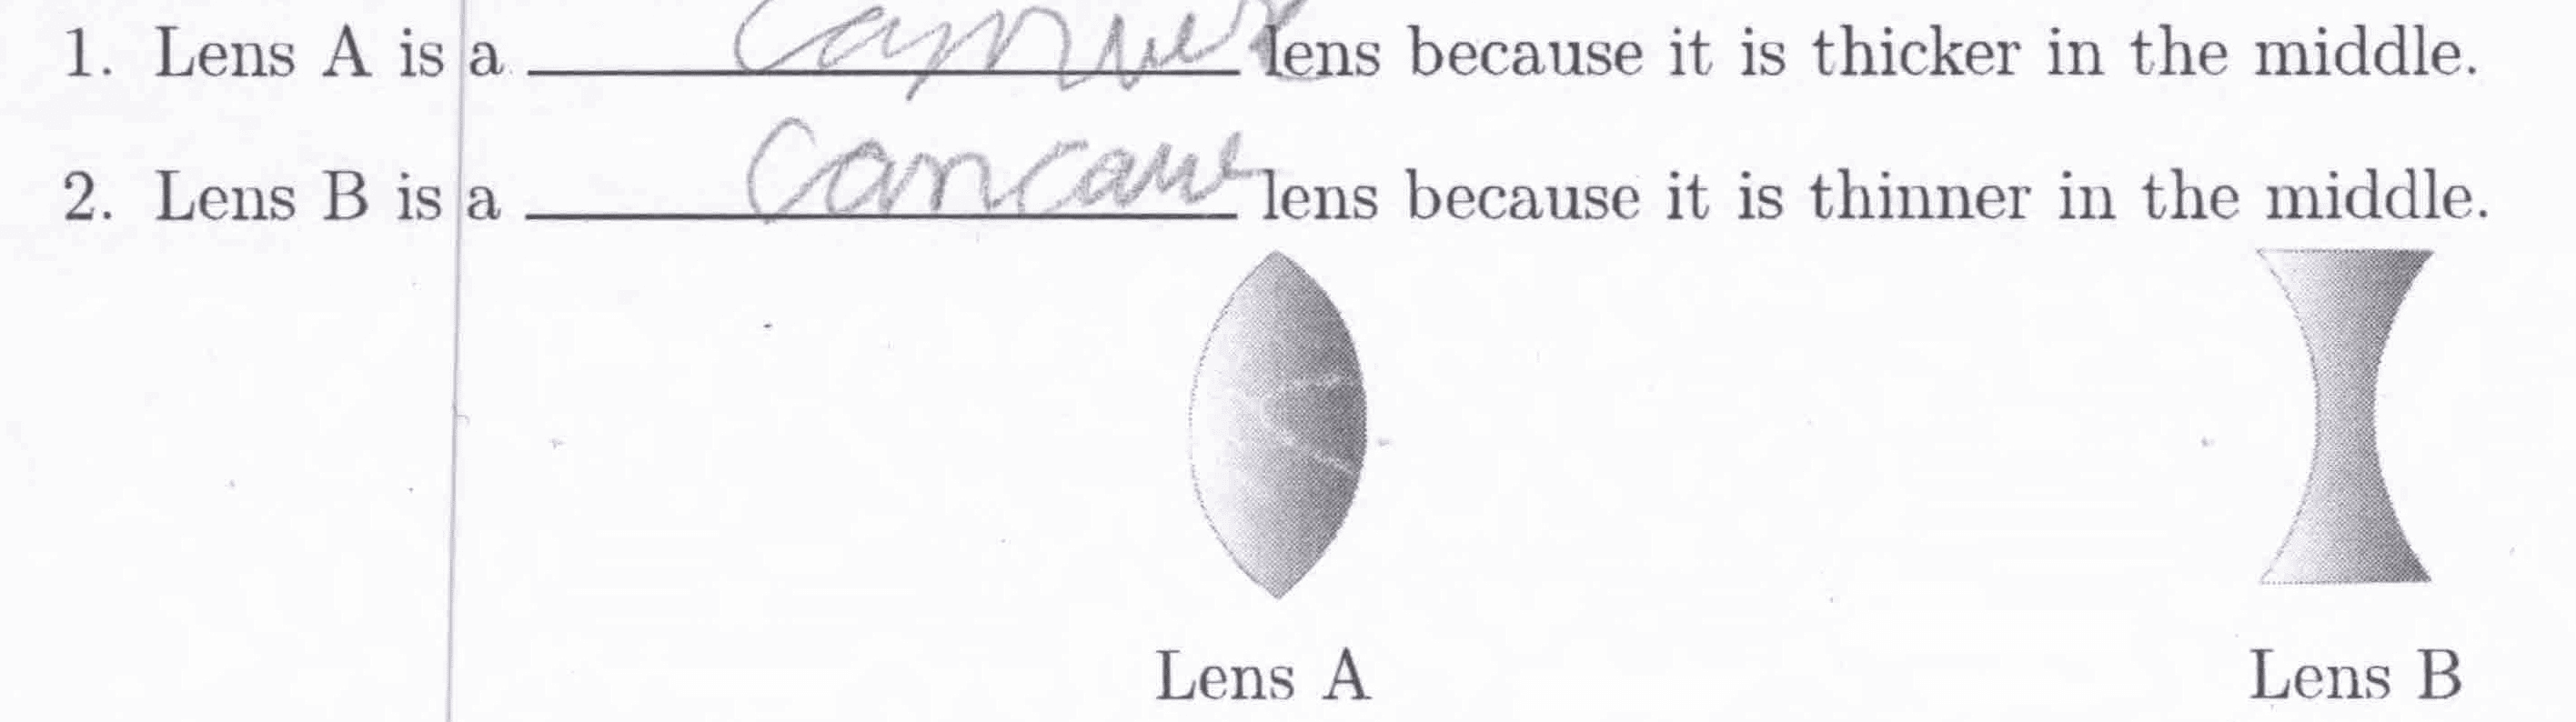 1. Lens A is a lens because it is thicker in the middle.
2. Lens B is a concave lens because it is thinner in the middle.
Lens A Lens B